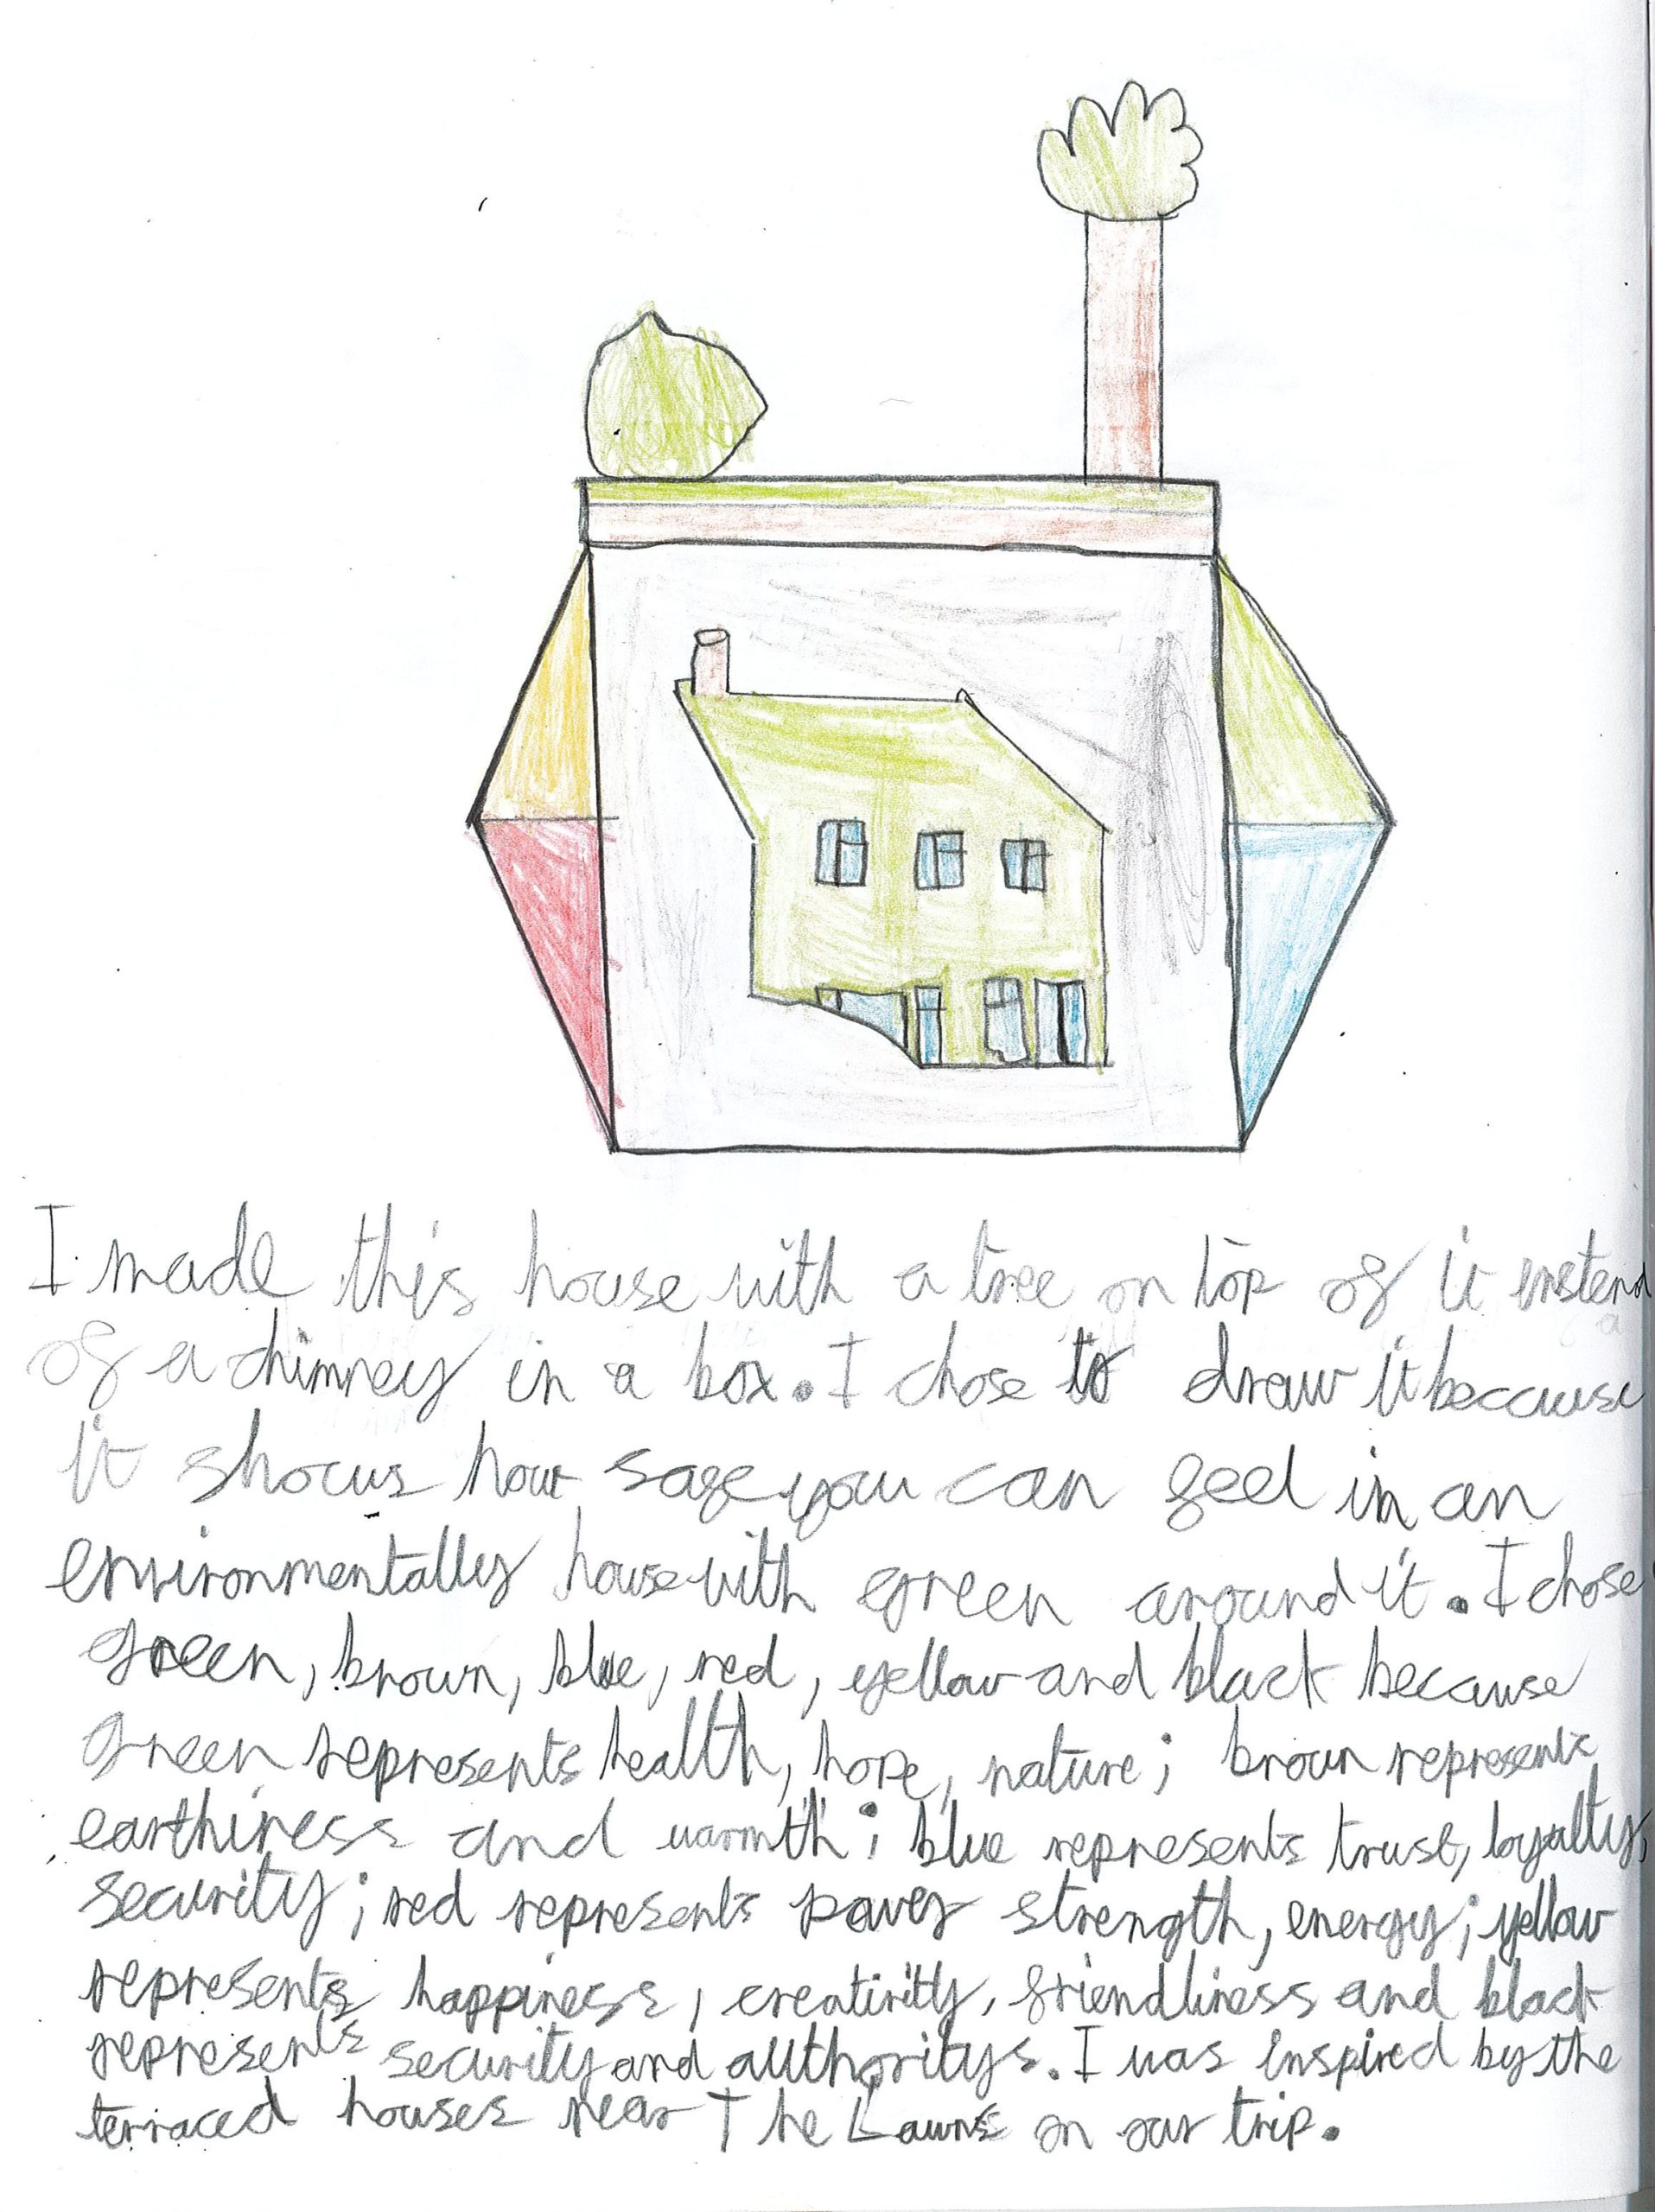 I made this house with a tree on top of it instead
of a chimney in a box. I chose to draw it because
it shows how safe you can feel in an
environmentally house with green around it. I chose
green, brown, blue, red, yellow and black because
green represents health, hope, nature; brown represents
earthiness and warmth; blue represents trust, loyalty,
security; red represents power strength, energy; yellow
represents happiness, creativity, friendliness and black
represents security and authoritys. I was inspired by the
terraced houses near The Lawns on our trip.